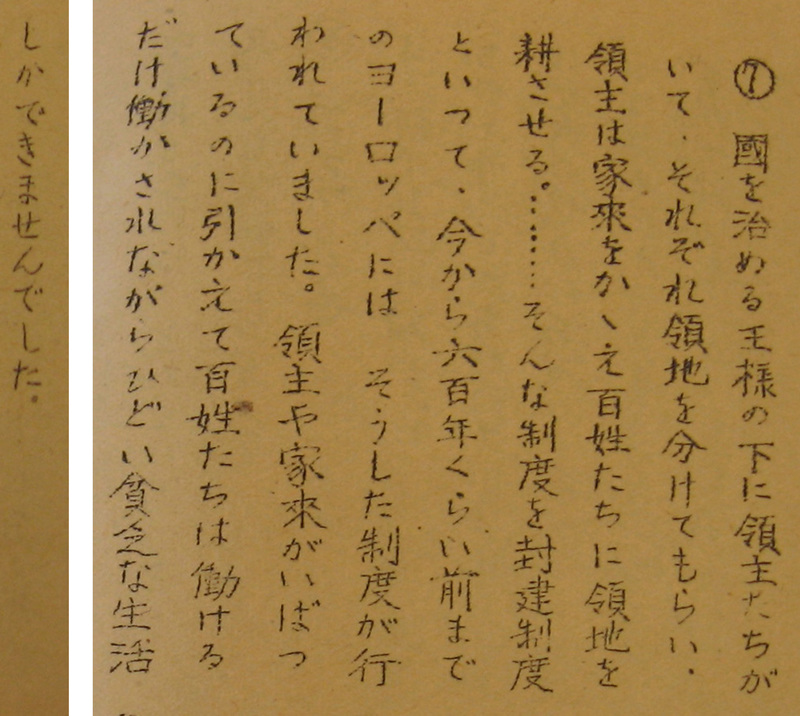 ⑦ 國を治める王様の下に領主たちが
いて、それぞれ領地を分けてもらい、
領主は家來をかゝえ百姓たちに領地を
耕させる。………そんな制度を封建制度
といつて、今から六百年くらい前まで
のヨーロッペには そうした制度が行
われていました。領主や家來がいばつ
ているのに引かえて百姓たちは働ける
だけ働かされながらひどい貧乏な生活
しかできませんでした。